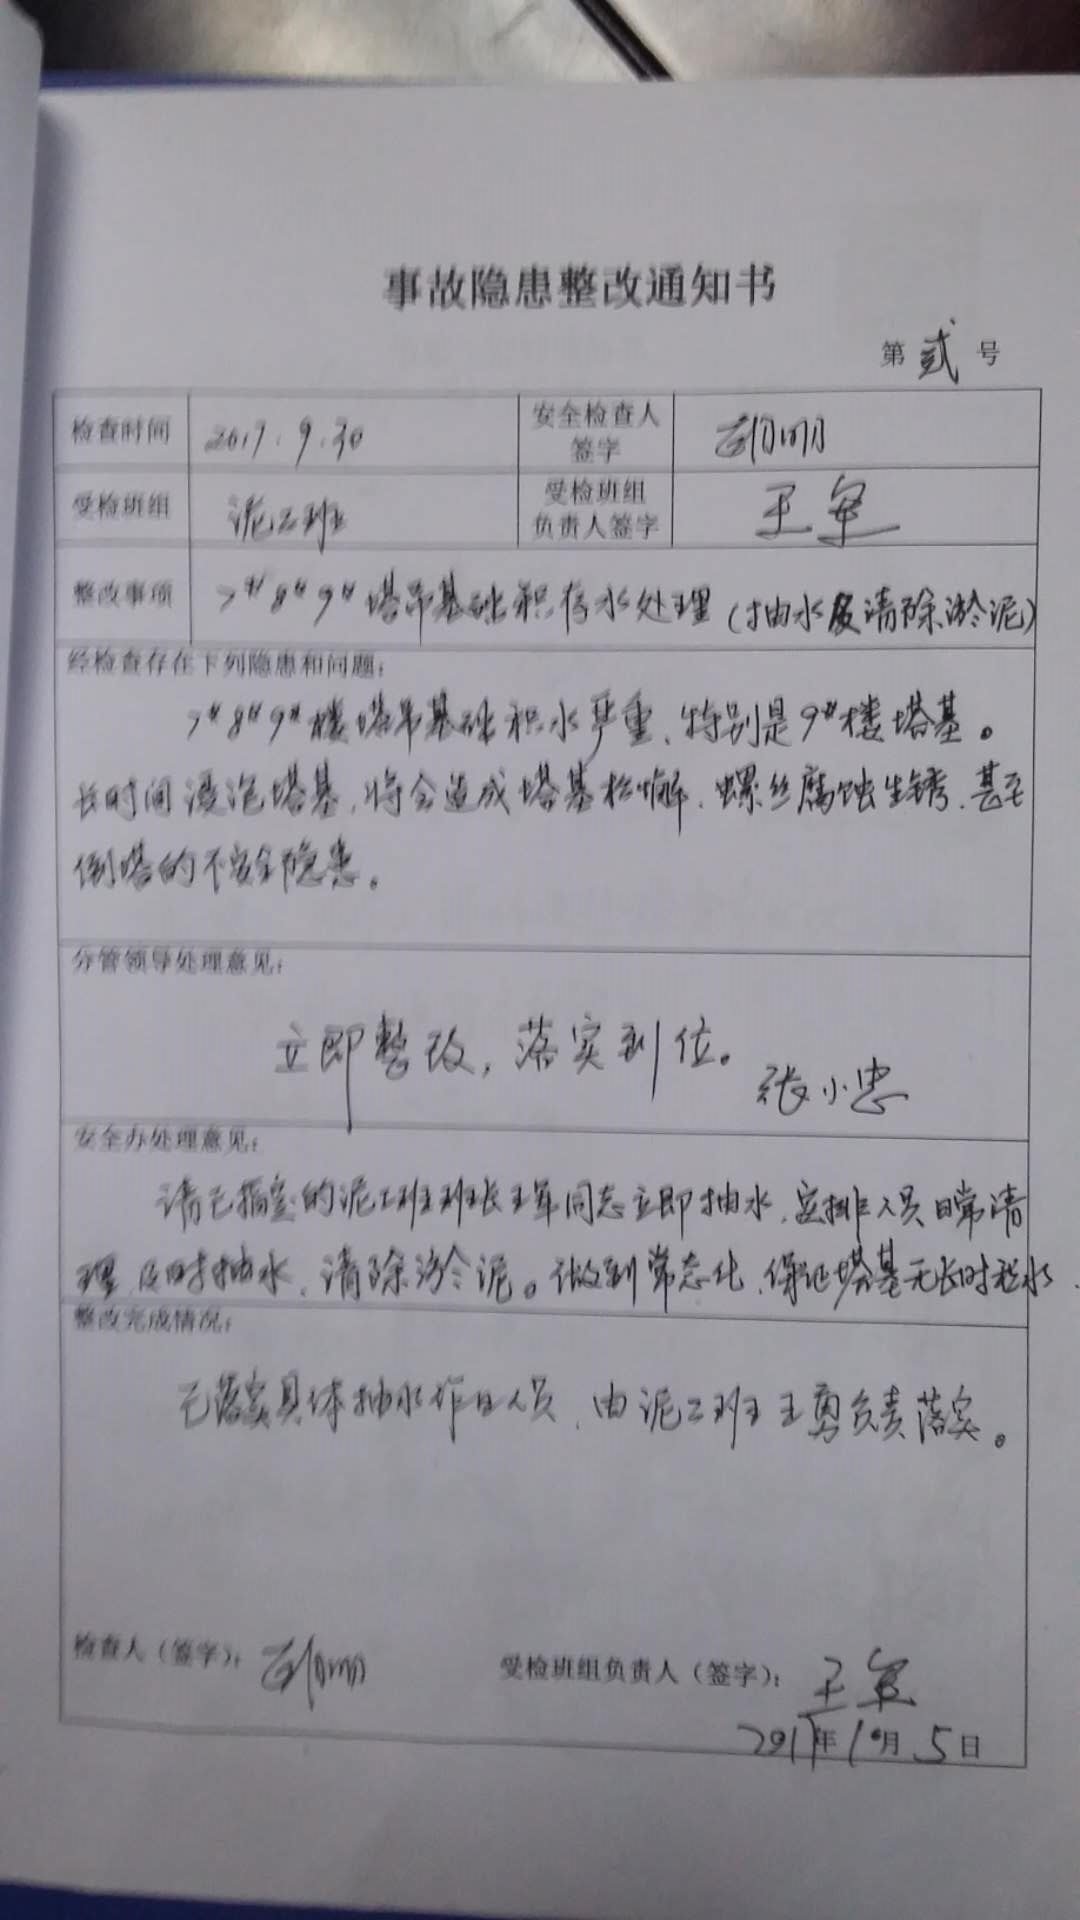 事故隐患整改通知书
第 贰 号
检查时间 2017.9.30 安全检查人签字
受检班组 泥工班 受检班组负责人签字 王军
整改事项 7# 8# 9# 塔吊基础积存水处理(抽水及清除淤泥)
经检查存在下列隐患和问题:
7# 8# 9# 楼塔吊基础积水严重、特别是9#楼塔基。
长时间浸泡塔基,将会造成塔基松懈、螺丝腐蚀生锈、甚至
倒塔的不安全隐患。
分管领导处理意见:
立即整改,落实到位。
张小忠
安全办处理意见:
请已指定的泥工班班长王军同志立即抽水、安排人员日常清
理、及时抽水、清除淤泥。做到常态化、保证塔基无长时积水.
整改完成情况:
已落实具体抽水作业人员、由泥工班王勇负责落实。
检查人(签字): 受检班组负责人(签字): 王军
2017年10月5日